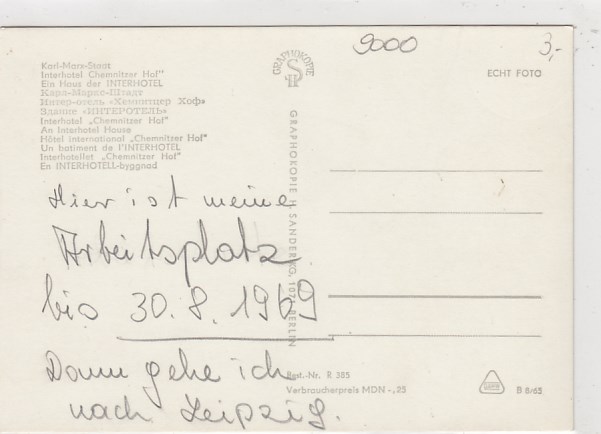 9000
3,-
Karl-Marx-Stadt
Interhotel Chemnitzer Hof"
Ein Haus der INTERHOTEL
Карл-Маркс-Штадт
Интер-отель «Хемнитцер Хоф»
Здание «ИНТЕРОТЕЛЬ»
Interhotel „Chemnitzer Hof"
An Interhotel House
Hôtel international „Chemnitzer Hof"
Un batiment de l'INTERHOTEL
Interhotellet „Chemnitzer Hof"
En INTERHOTELL-byggnad
GRAPHOKOPIE
H S
ECHT FOTO
GRAPHOKOPIE H. SANDER KG, 1071 BERLIN
Hier ist meine
Arbeitsplatz
bis 30.8.1969
Dann gehe ich
nach Leipzig.
Best.-Nr. R 385
Verbraucherpreis MDN -,25
B 8/65